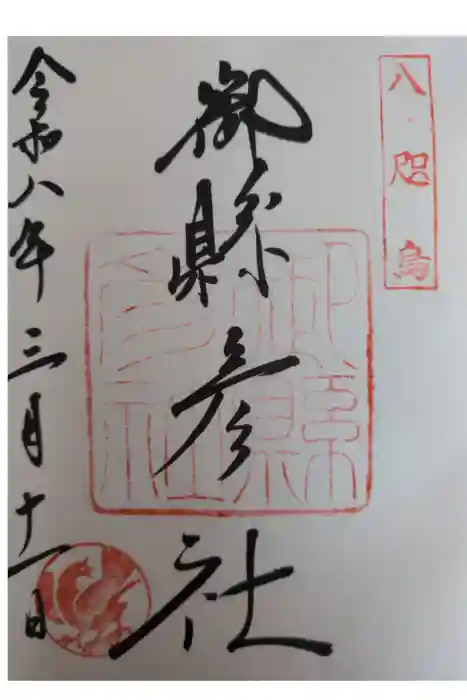 八咫烏
御縣彦社
御縣
彦社
令和八年三月十一日